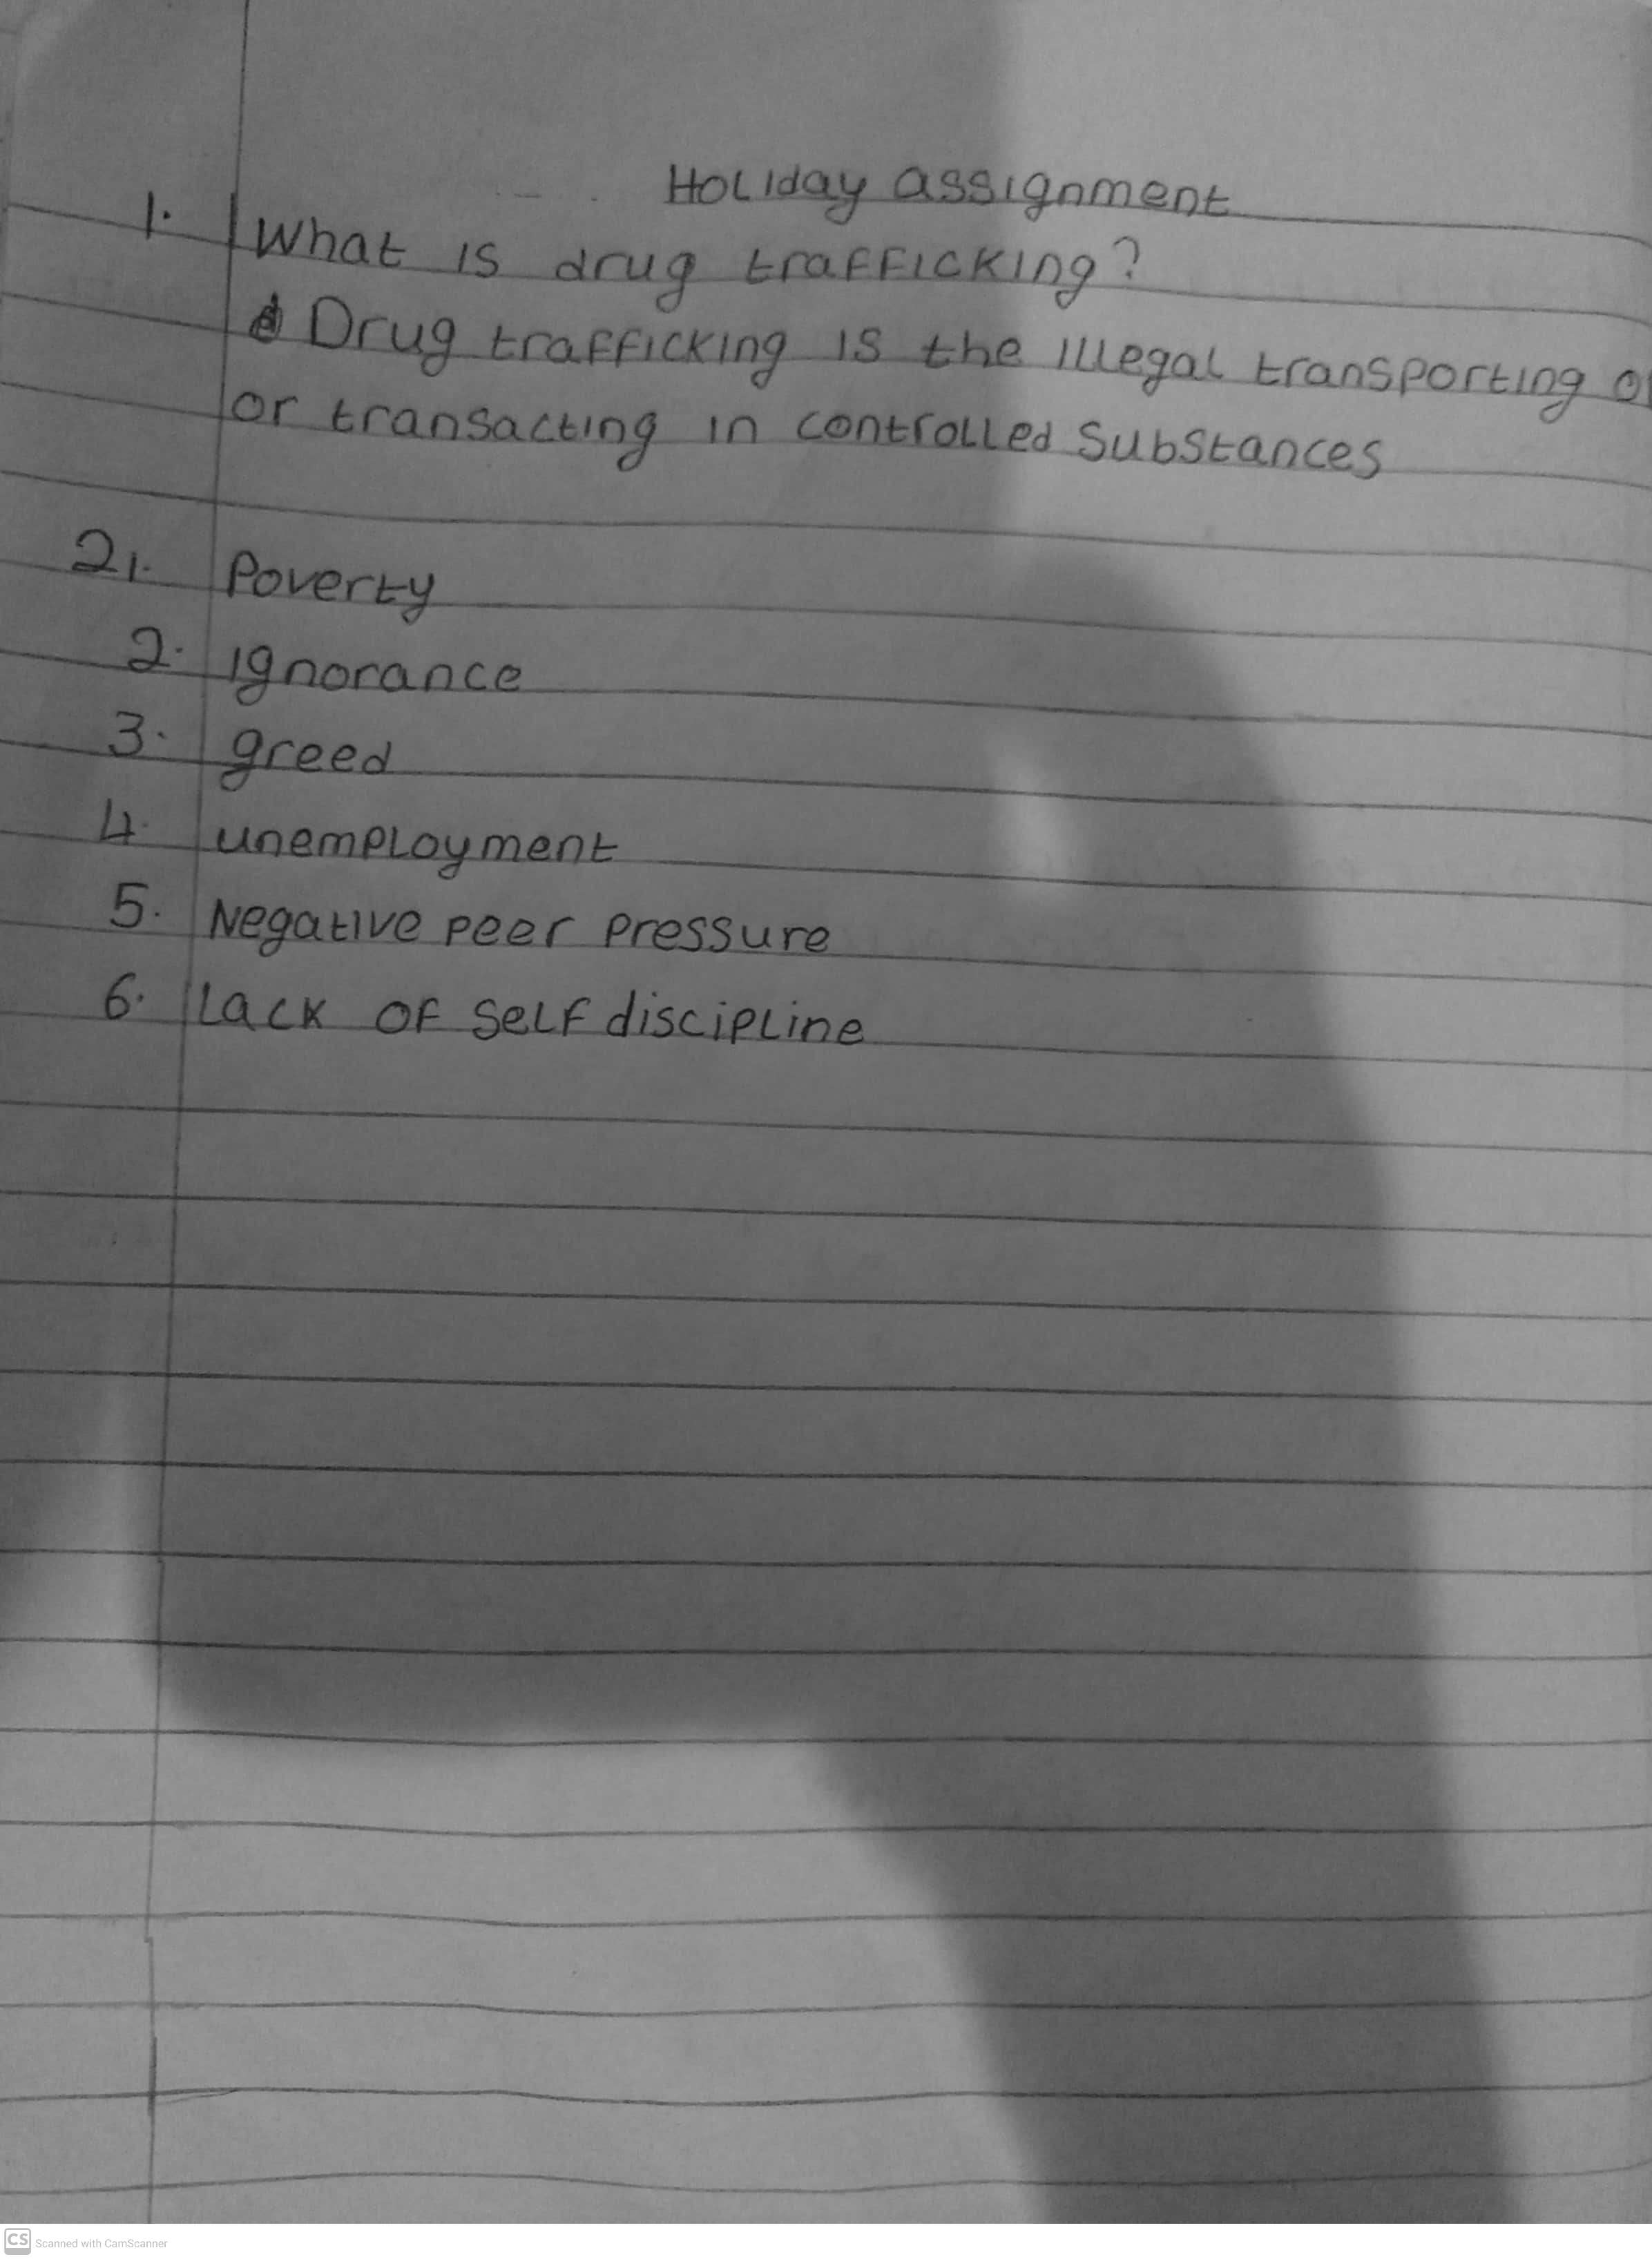 Holiday assignment
1. What is drug trafficking?
Drug trafficking is the illegal transporting of
or transacting in controlled substances
2 1. Poverty
2. ignorance
3. greed
4. unemployment
5. Negative peer pressure
6. Lack of self discipline
CS Scanned with CamScanner